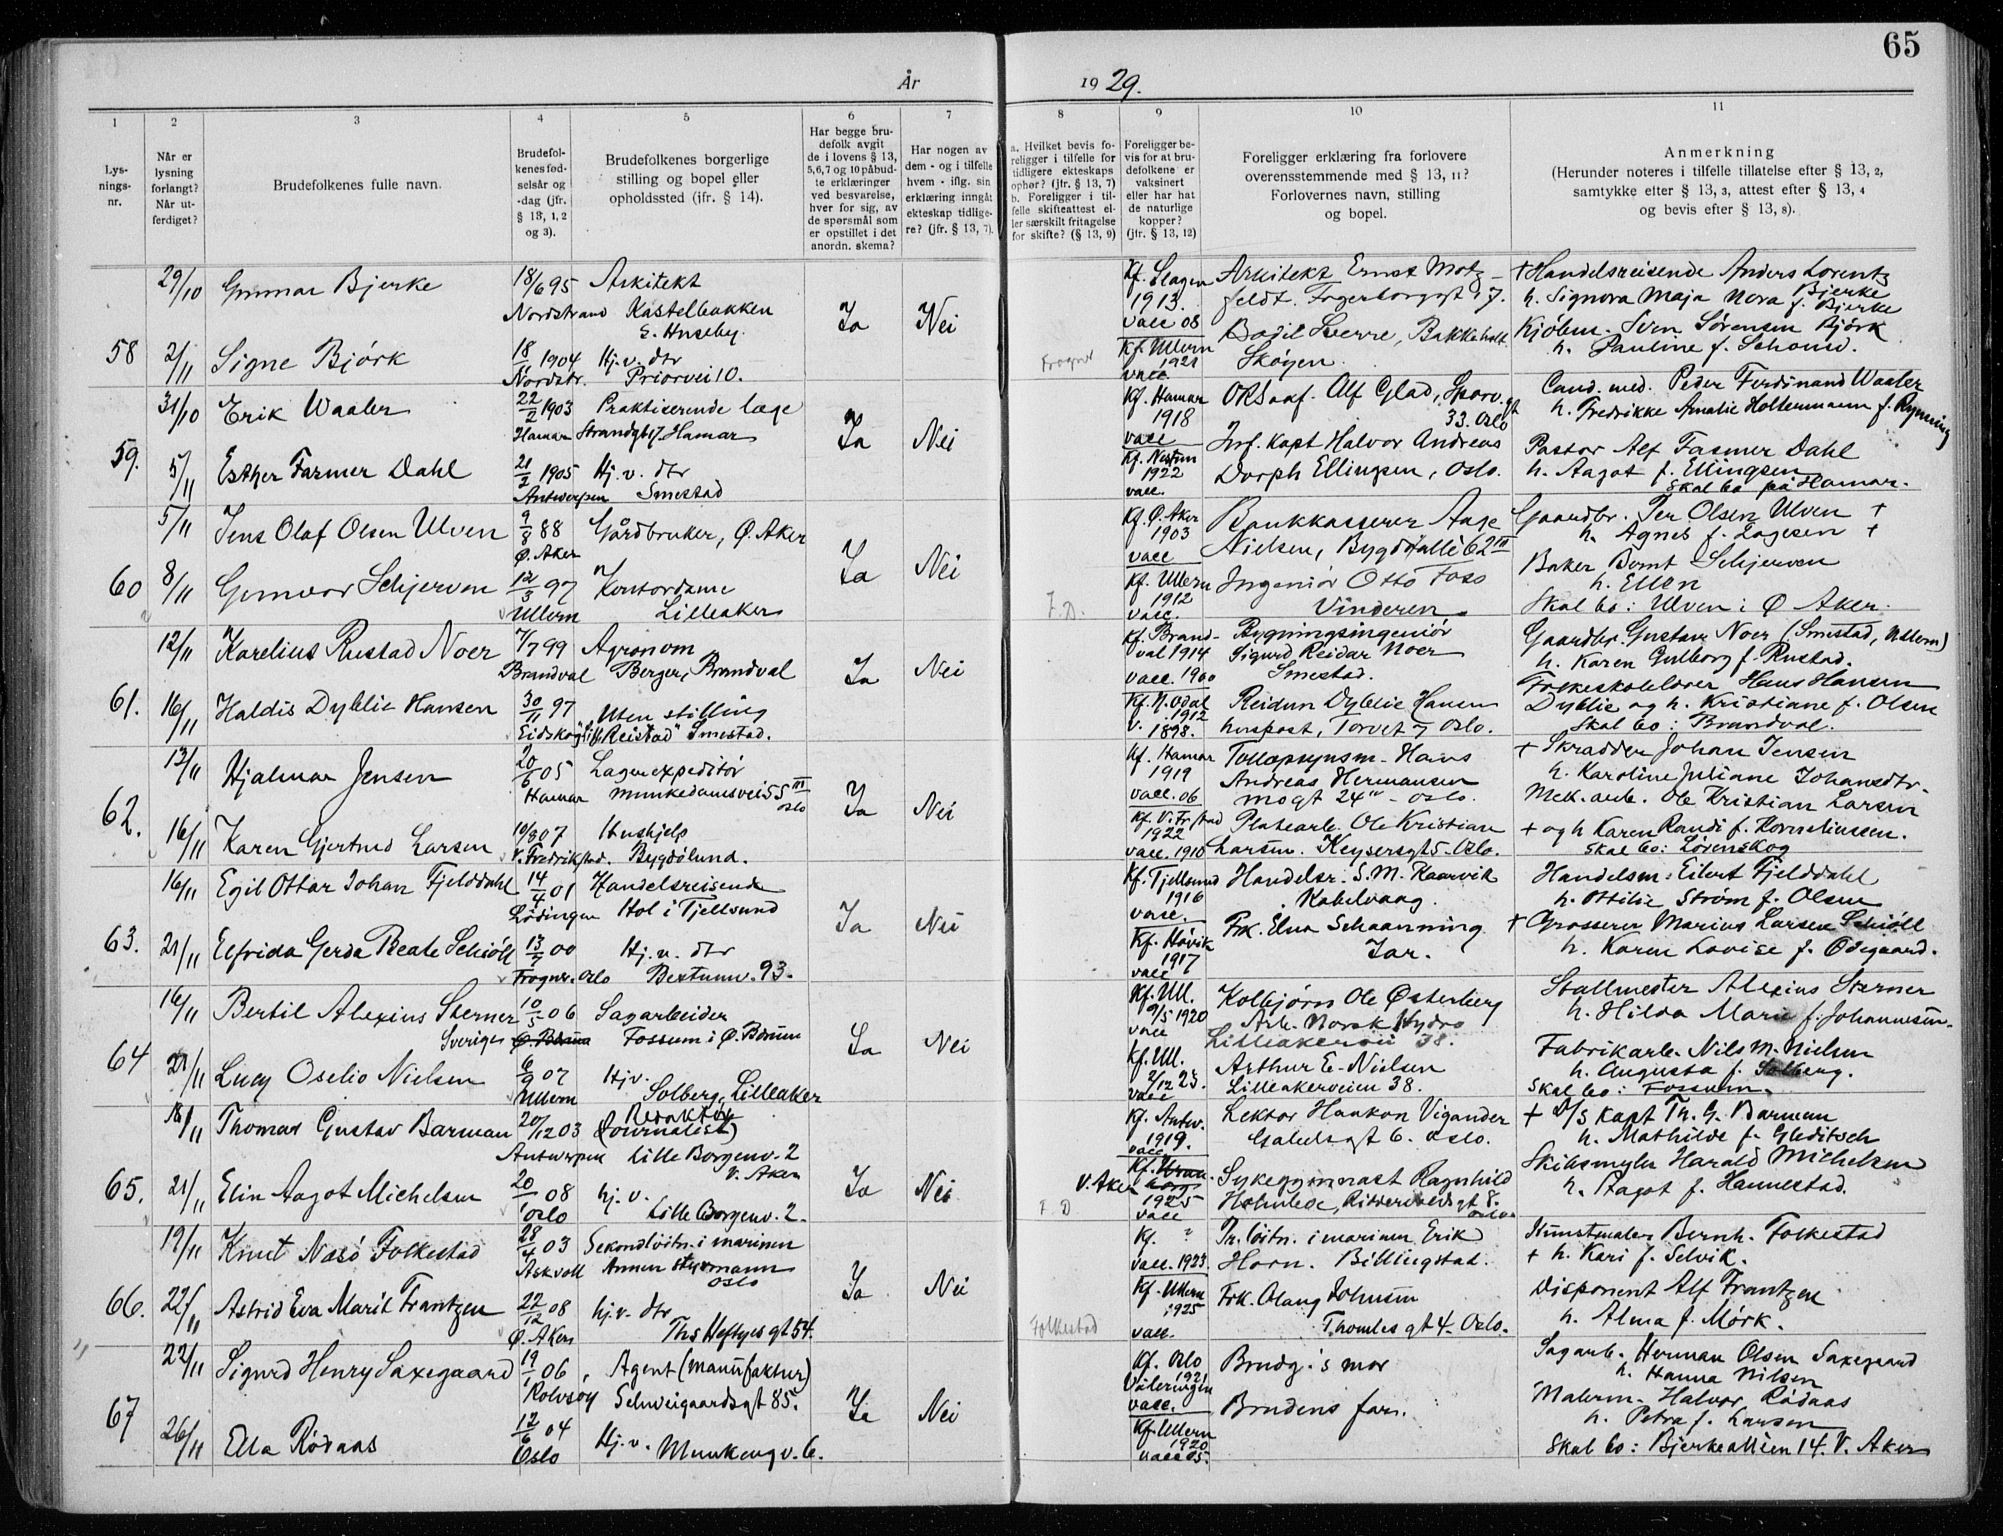 65
År 1929.
1 2 3 4 5 6 7 8 9 10 11
Lys-
nings-
nr.
Når er
lysning
forlangt?
Når ut-
ferdiget?
Brudefolkenes fulle navn.
Brudefol-
kenes fød-
selsår og
-dag (jfr.
§ 13, 1, 2
og 3).
Brudefolkenes borgerlige
stilling og bopel eller
opholdssted (jfr. § 14).
Har begge bru-
defolk avgit
de i lovens § 13,
5,6,7 og 10 påbud-
te erklæringer
ved besvarelse,
hver for sig, av
de spørsmål som
er opstillet i det
anordn. skema?
Har nogen av
dem - og i tilfelle
hvem - iflg. sin
erklæring inngått
ekteskap tidlige-
re? (jfr. § 13, 7).
a. Hvilket bevis fo-
religger i tilfelle for
tidligere ekteskaps
ophør? (jfr. § 13, 7)
b. Foreligger i til-
felle skifteattest el-
ler særskilt fritagelse
for skifte? (§ 13, 9)
Foreligger be-
vis for at bru-
defolkene er
vaksinert
eller har hat
de naturlige
kopper?
(jfr. § 13, 12)
Foreligger erklæring fra forlovere
overensstemmende med § 13, 11?
Forlovernes navn, stilling
og bopel.
Anmerkning
(Herunder noteres i tilfelle tillatelse efter § 13, 2,
samtykke efter § 13, 3, attest efter § 13, 4
og bevis efter § 13, 8).
58
29/10 Gunnar Bjerke 18/6 95 Arkitekt
Nordstrand Kastelbakken
S. Huseby.
Ja Nei
Kf. Slagen
1913.
vacc 08
Arkitekt Ernst Motz-
feldt. Fagerborggt 17.
+ Handelsreisende Anders Lorentz
Bjerke
h. Signora Maja Nora f. Bjerke
2/11 Signe Bjørk 18/ 1904 Hj. v. dtr
Nordstr. Priorvei 10.
Frogner
Kf. Ullern
1921
vacc
Bodil Skerve, Bakkeholt
Skøyen.
Kjøbm. Sven Sørensen Bjørk
h. Pauline f. Schond.
59.
31/10 Erik Waaler 22/2 1903 Praktiserende læge
Hamar Strandgt 17 Hamar
Ja Nei
Kf. Hamar
1918
vacc
ORSaaf. Alf Glad, Sporv.gt
33. Oslo
Cand. med. Peder Ferdinand Waaler
h. Fredrikke Amalie Holtermann f. Rynning
5/11 Esther Farmer Dahl 21/2 1905 Hj. v. dtr
Antwerpen Smestad
Kf. Nestun
1922
vacc.
Inf. Kapt Halvor Andreas
Dorph Ellingsen, Oslo.
Pastor Alf Fasmer Dahl
h. Aagot f. Ellingsen
Skal bo på Hamar.
60
5/11 Jens Olaf Olsen Ulven 9/8 88 Gårdbruker, Ø. Aker
Ø. Aker
Ja Nei
Kf. Ø. Aker
1903
vacc
Bankkasserer Aage
Nielsen, Bygdø allé 62 III
Gaardbr. Per Olsen Ulven +
h. Agnes f. Lagesen +
8/11 Gunvor Schjerven 12/3 97 Kontordame
Ullern Lilleaker
F.D.
Kf. Ullern
1912
vacc.
Ingeniør Otto Foss
Vinderen
Baker Bernt Schjerven
h. Ellen
Skal bo: Ulven i Ø Aker.
61.
12/11 Karelius Rustad Noer 7/7 99 Agronom
Brandval Berger, Brandval
Ja Nei
Kf. Brand-
val 1914
vacc. 1900
Bygningsingeniør
Sigurd Reidar Noer
Smestad.
Gaardbr. Gustav Noer (Smestad, Ullern)
h. Karen Gulborg f. Rustad.
16/11 Haldis Dyblie Hansen 30/11 97 Uten stilling
Eidskog "Reistad" Smestad.
Kf. N. Odal
1912
v. 1898.
Reidun Dyblie Hansen
huspost, Torvet 7 Oslo.
Folkeskolelærer Hans Hansen
Dyblie og h. Kristiane f. Olsen
Skal bo: Brandval.
62.
13/11 Hjalmar Jensen 20/6 05 Lagerexpeditør
Hamar Munkedamsvei 55 III
Oslo
Ja Nei
Kf. Hamar
1919
vacc. 06
Tolloppsynsm. Hans
Andreas Hermansen
Mogt 24 II - Oslo.
+ Skrædder Johan Jensen
h. Karoline Juliane Johansdtr.
16/11 Karen Gjertrud Larsen 10/8 07 Hushjelp
V. Fredrikstad. Bygdølund.
Kf. V. Fr.stad
1922
vacc. 1910
Platearb. Ole Kristian
Larsen. Keysersgt 5. Oslo.
Mek. arb. Ole Kristian Larsen
+ og h Karen Randi f. Kornetiussen.
Skal bo: Lørenskog
63.
16/11 Egil Ottar Johan Fjelddahl 14/4 01 Handelsreisende
Lødingen Hol i Tjellsund
Ja Nei
Kf. Tjellsund
1916
vacc.
Handelsr. S. M. Kaarvik
Kabelvaag.
Handelsm: Eilert Fjelddahl
h. Ottilie Strøm f. Olsen
21/11 Elfrida Gerda Beate Schiöll 13/7 00 Hj. v. dtr
Frogner. Oslo Bestumv. 93.
Kf. Høvik
1917
vacc
Frk. Elna Schaanning
Jar.
+ Grosserer Marius Larsen Schiöll
h. Karen Lovise f. Ødegaard.
64
16/11 Bertil Alexius Sterner 10/5 06 Sagarbeider
Sverige Ø. Bærum Fossum i Ø. Bærum
Ja Nei
Kf. Ull.
9/5 1920
vacc
Kolbjørn Ole Østerberg
Arb. Norsk Hydro
Lilleakerveii 38.
Stallmester Alexius Sterner
h. Hilda Marie f. Johannesen.
21/11 Lucy Oselio Nielsen 6/9 07 Hjv.
Ullern Solberg, Lilleaker
Kf. Ull.
2/12 23.
vacc
Arthur E. Nielsen
Lilleakerveien 38.
Fabrikarb. Nils M. Nielsen
h. Augusta f. Solberg.
Skal bo: Fossum.
65.
18/11 Thomas Gustav Barman 20/12 03 Redaktør
(Journalist)
Antwerpen Lille Borgenv. 2
V. Aker
Ja Nei
Kf. Antw.
1919.
vacc
Lektor Haakon Vigander
Gabelsgt 6. Oslo.
+ D/S Kapt Th. G. Barman
h. Mathilde f. Gleditsch
21/11 Elin Aagot Michelsen 20/1 08 hj. v.
Oslo Lille Borgenv. 2.
F. D
V. Aker Kf. Uran
borg
1925
vacc
Sykegymnast Ragnhild
Holmboe, Ridderwoldsgt 8.
Oslo
Skibsmegler Harald Michelsen
h. Aagot f. Hannestad.
66.
19/11 Knut Næsø Folkestad 28/4 03 Sekondløitn. i marinen
Askvoll
Oslo
Ja Nei
Kf. "
vacc. 1923.
Pr. løitn. i marinen Erik
Horn. Billingstad.
Kunstmaler Bernh. Folkestad
+ h. Kari f. Selvik.
22/11 Astrid Eva Marit Frantzen 22/12 08 hj. v. dtr
Ø. Aker Ths Heftyes gt 54.
Folkestad
Kf. Ullern
1925
vacc.
Frk. Olaug Johnsen
Thomles gt 4. Oslo.
Disponent Alf Frantzen
h. Alma f. Mørk.
67
22/11 Sigurd Henry Saxegaard 19/1 06, Agent (manufaktur)
Rolvsøy Schweigaardsgt 85.
Ja Nei
Kf. Oslo
1921
Vålerengen
vacc.
Brudg.'s mor
Sagarb. Herman Olsen Saxegaard
h. Hanna Nilsen
26/11 Ella Rødaas 12/6 04
Oslo Hj. v. Munkeng v. 6.
Kf. Ullern
1920
vacc 05.
Brudens far.
Malerm. Halvor Rødaas
h. Petra f. Larsen
Skal bo: Bjerkealléen 14. V. Aker